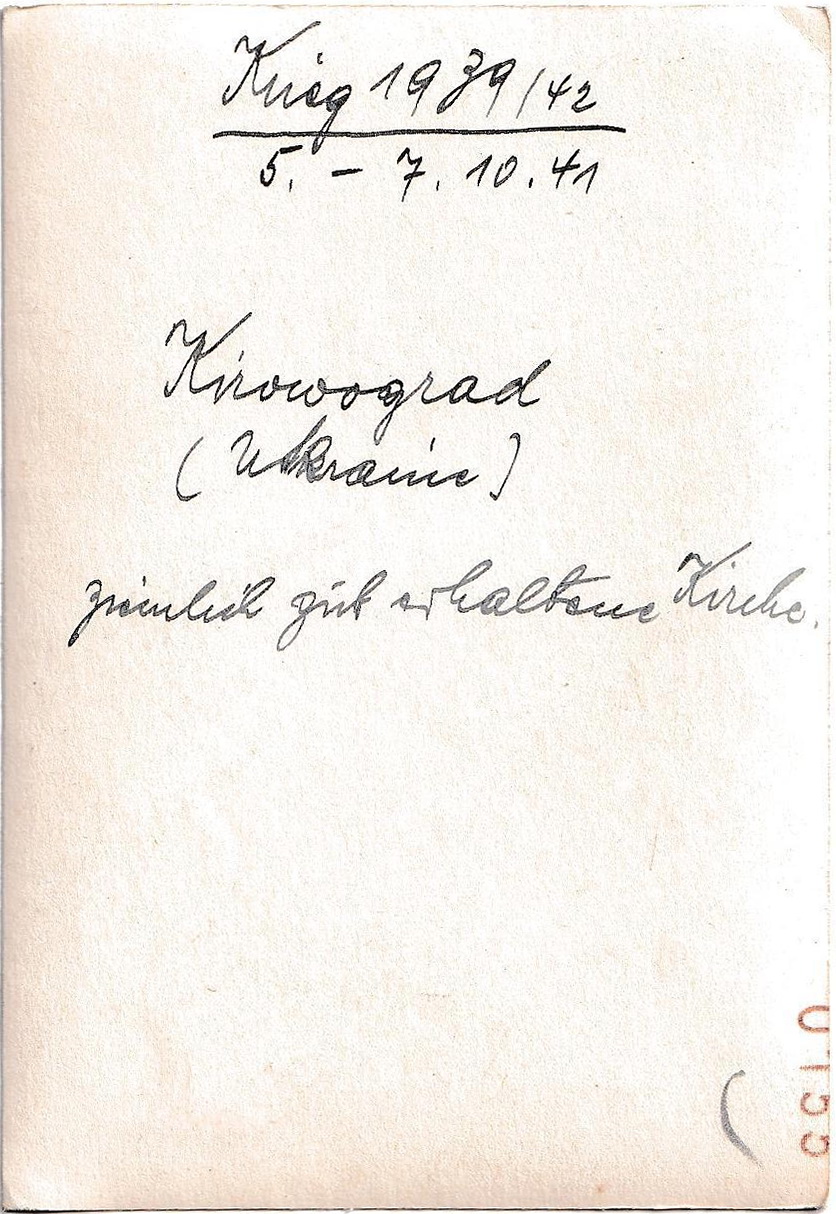 Krieg 1939/42
5. - 7. 10. 41
Kirowograd
(Ukraine)
ziemlich gut erhaltene Kirche.
0155